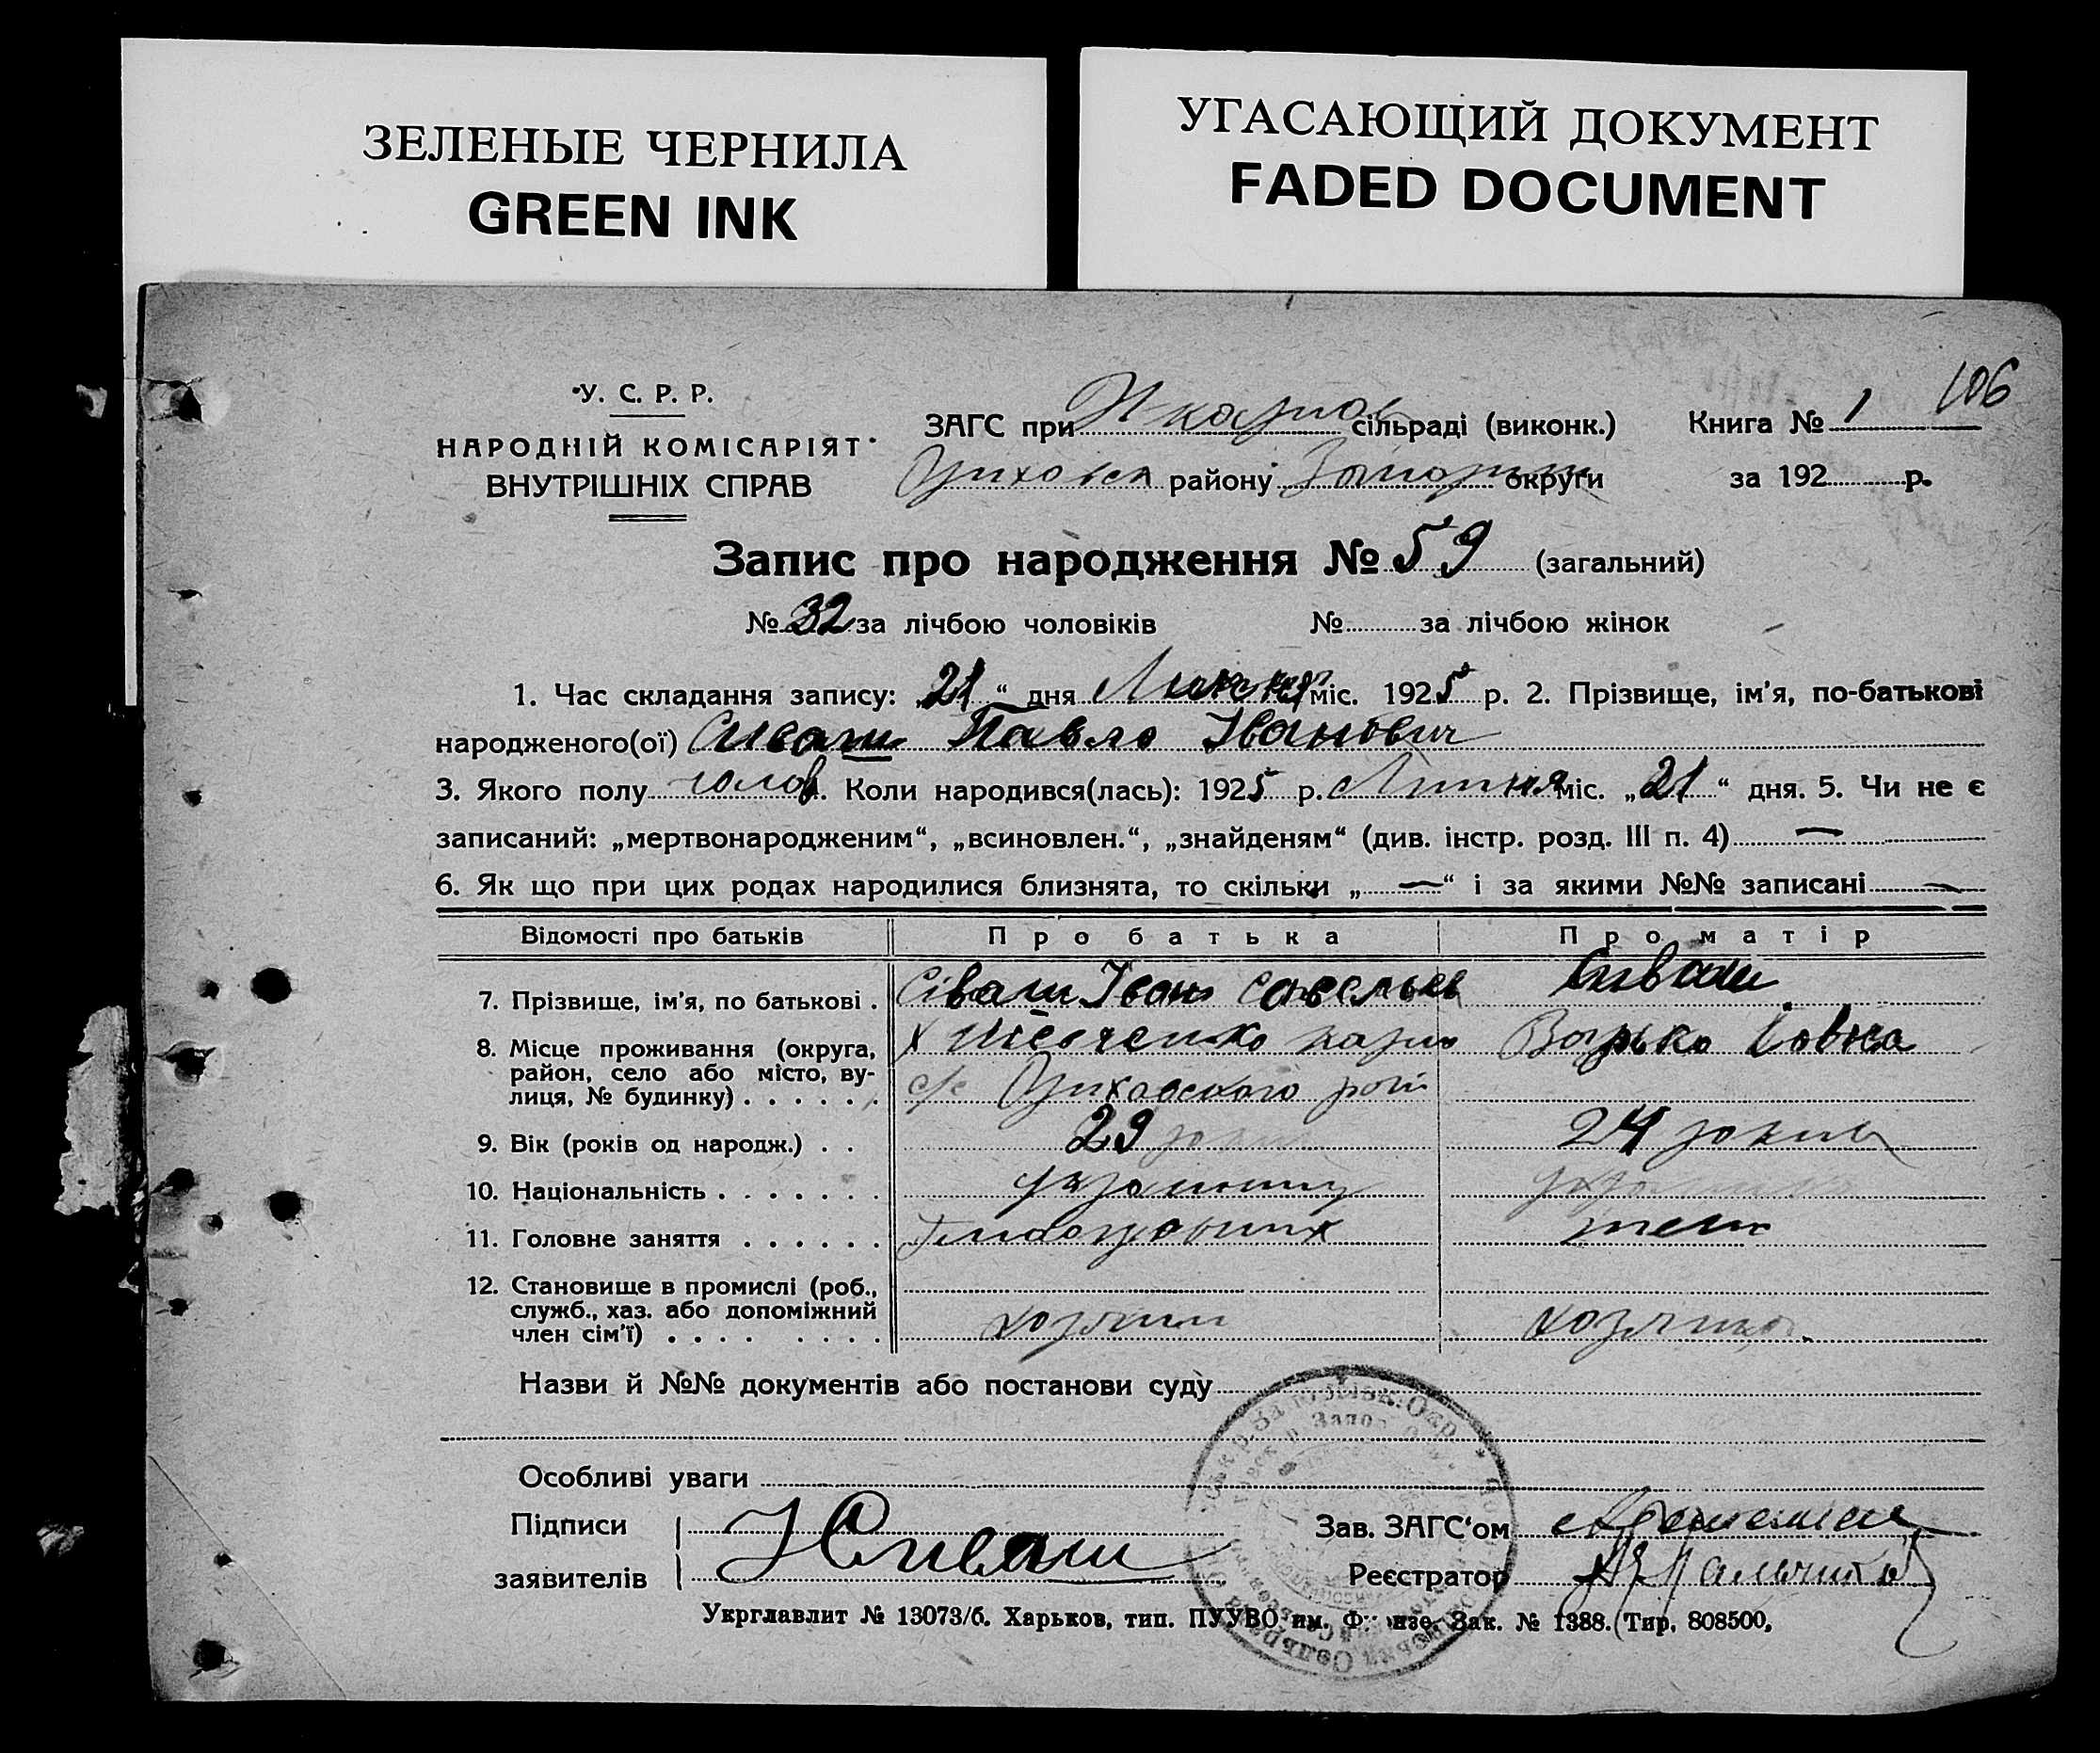 ЗЕЛЕНЫЕ ЧЕРНИЛА
GREEN INK
УГАСАЮЩИЙ ДОКУМЕНТ
FADED DOCUMENT
106
У. С. Р. Р.
НАРОДНІЙ КОМІСАРІЯТ
ВНУТРІШНІХ СПРАВ
ЗАГС при сільраді (виконк.) Книга № 1
району округи за 192 р.
Запис про народження № 59 (загальний)
№ 32 за лічбою чоловіків № за лічбою жінок
1. Час складання запису: „21“ дня Липня міс. 1925 р. 2. Прізвище, ім’я, по-батькові
народженого(ої) Сиваш Павло Іванович
3. Якого полу чолов. Коли народився(лась): 1925 р. Липня міс. „21“ дня. 5. Чи не є
записаний: „мертвонародженим“, „всиновлен.“, „знайденям“ (див. інстр. розд. III п. 4) —
6. Як що при цих родах народилися близнята, то скільки „—“ і за якими №№ записані —
Відомості про батьків Про батька Про матір
7. Прізвище, ім’я, по батькові . Сіваш Іван Савельев Сиваш
8. Місце проживання (округа, х Шевченко
район, село або місто, ву- с/с
лиця, № будинку) . . . . . .
9. Вік (років од народж.) . . 29 роки 24 роки
10. Національність . . . . . . . українець українка
11. Головне заняття . . . . . . теж
12. Становище в промислі (роб.,
служб., хаз. або допоміжний
член сім’ї) . . . . . . . . хозяин хозяйка
Назви й №№ документів або постанови суду
Особливі уваги
Підписи Сиваш Зав. ЗАГС‘ом
заявителів Реєстратор
Укрглавлит № 13073/б. Харьков, тип. ПУУВО им. Ф нзе. Зак. № 1388. Тир. 808500.